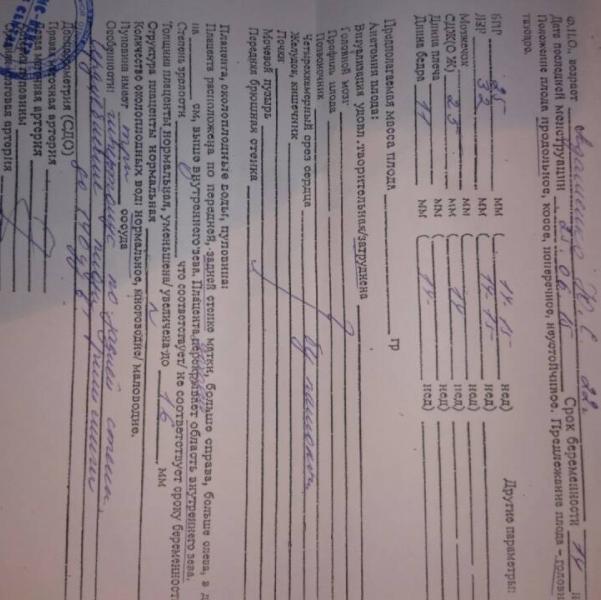 Ф.И.О. возраст Н. Е. 22.
Дате последней менструации 25.06.15 Срок беременности 14 н
Положение плода продольное, косое, поперечное, неустойчивое. Предлежание плода - головн
тазовое.
Другие параметры:
БПР 25 мм ( 14-15 нед)
ЛЗР 33 мм ( 14-15 нед)
Мозжечок мм ( нед)
СДЖ(О Ж) 23 мм ( 14 нед)
Длина плеча мм ( нед)
Длина бедра 11 мм ( 14 нед)
Предполагаемая масса плода гр
Анатомия плода:
Визуализация удовлетворительная/затруднена
Головной мозг
Профиль плода
Позвоночник
Четырехкамерный срез сердца
Желудок, кишечник
Почки
Мочевой пузырь
Передняя брюшная стенка
Плацента, околоплодные воды, пуповина:
Плацента расположена по передней, задней стенке матки, больше справа, больше слева, в д
на см, выше внутреннего зева. Плацента перекрывает область внутреннего зева.
Степень зрелости 0 что соответствует/ не соответствует сроку беременност
Толщина плаценты нормальная, уменьшена/ увеличена до 16 мм
Структура плаценты нормальная N
Количество околоплодных вод: нормальное, многоводие/ маловодие.
Пуповина имеет три сосуда
Особенности: гипертонус по задней стенке.
Допплерометрия (СДО) до 140 уд в
Правая маточная артерия
Левая маточная артерия
Артерия пуповины
Среднемозговая артерия